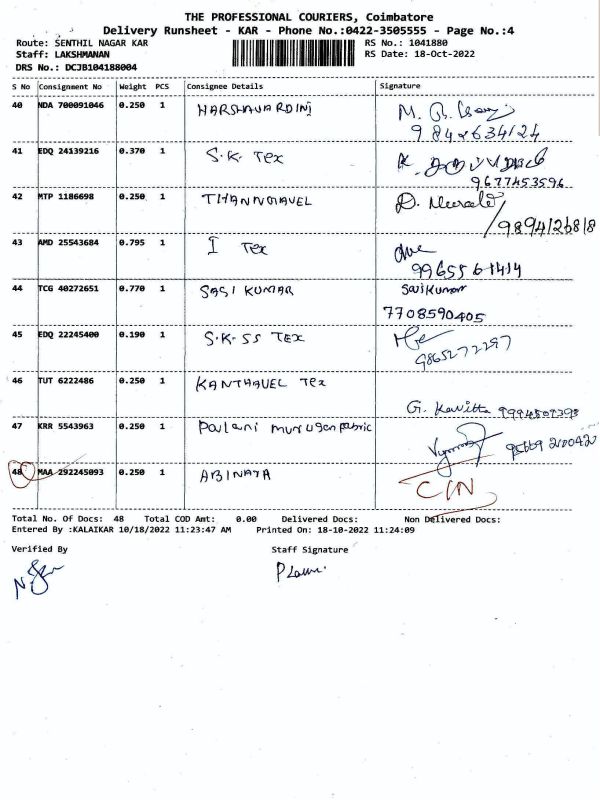 THE PROFESSIONAL COURIERS, Coimbatore
Delivery Runsheet - KAR - Phone No.:0422-3505555 - Page No.:4
Route: SENTHIL NAGAR KAR RS No.: 1041880
Staff: LAKSHMANAN RS Date: 18-Oct-2022
DRS No.: DCJB104188004
S No Consignment No Weight PCS Consignee Details Signature
40 NDA 700091046 0.250 1 HARSHAVARDINI M.
9842634124
41 EDQ 24139216 0.370 1 S.K. Tex K.
9677453596
42 MTP 1186698 0.250 1 D. Murali
9894126818
43 AMD 25543684 0.795 1 I Tex
9965561414
44 TCG 40272651 0.770 1 SASI KUMAR Sasikumar
7708590405
45 EDQ 22245400 0.190 1 S.K.SS TEX
9865272297
46 TUT 6222486 0.250 1 KANTHAVEL Tex
G. Kavitha
47 KRR 5543963 0.250 1 Palani murugan fabric
48 MAA 292245093 0.250 1 ABINAYA C/N
Total No. Of Docs: 48 Total COD Amt: 0.00 Delivered Docs: Non Delivered Docs:
Entered By :KALAIKAR 10/18/2022 11:23:47 AM Printed On: 18-10-2022 11:24:09
Verified By Staff Signature